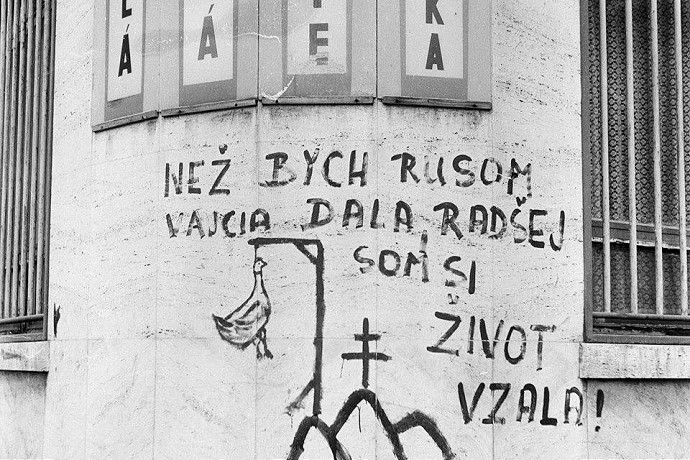 L Á
Á
T E
K A
NEŽ BYCH RUSOM
VAJCIA DALA, RADŠEJ
SOM SI
ŽIVOT
VZALA!